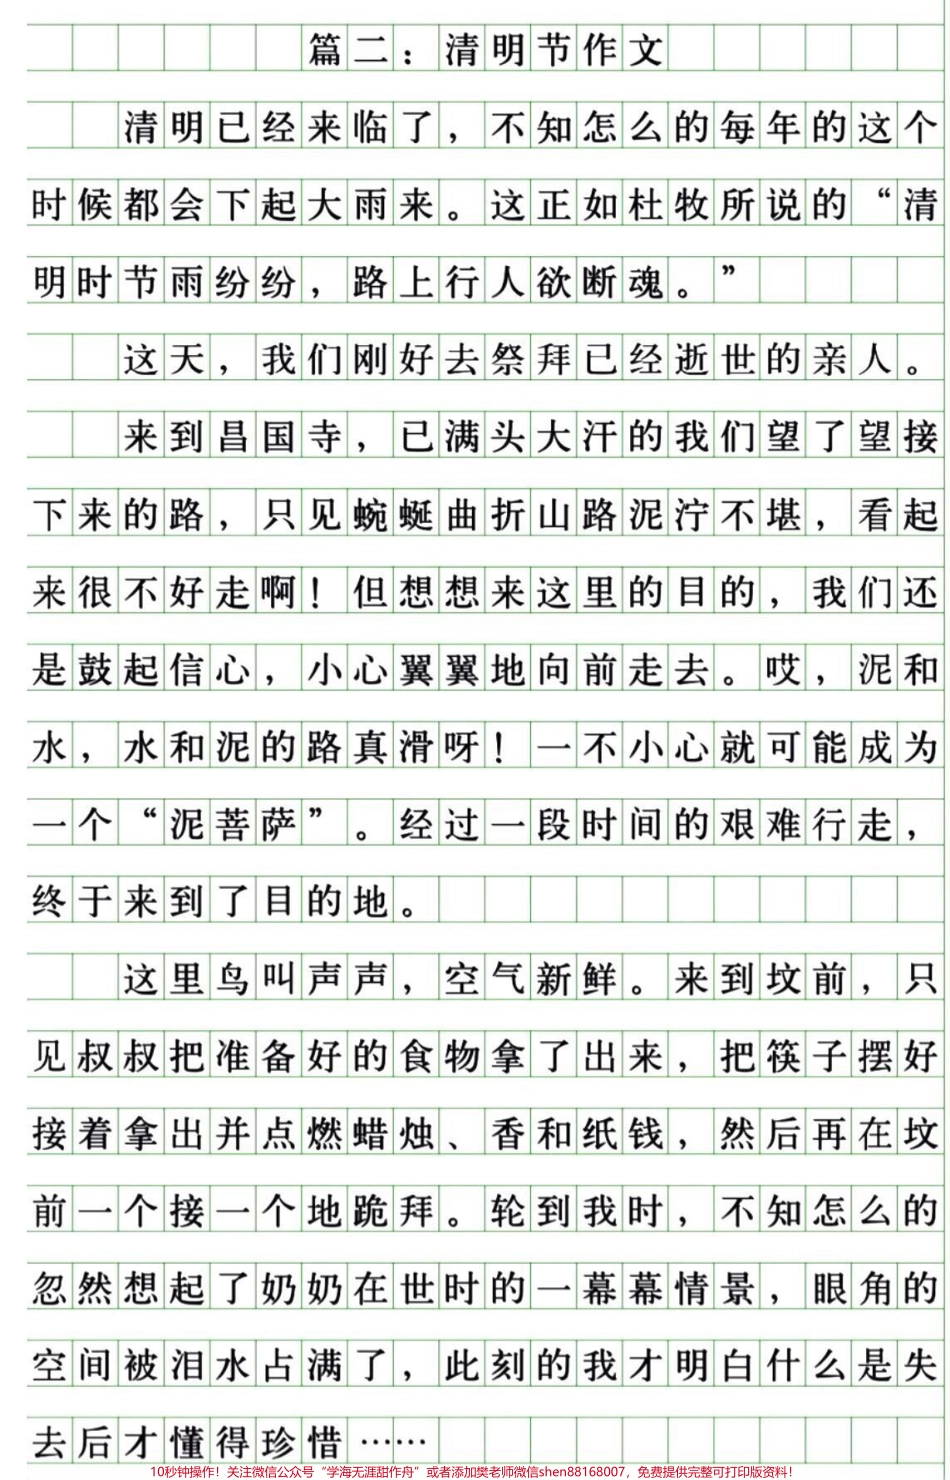 篇二：清明节作文
清明已经来临了，不知怎么的每年的这个
时候都会下起大雨来。这正如杜牧所说的“清
明时节雨纷纷，路上行人欲断魂。”
这天，我们刚好去祭拜已经逝世的亲人。
来到昌国寺，已满头大汗的我们望了望接
下来的路，只见蜿蜒曲折山路泥泞不堪，看起
来很不好走啊！但想想来这里的目的，我们还
是鼓起信心，小心翼翼地向前走去。哎，泥和
水，水和泥的路真滑呀！一不小心就可能成为
一个“泥菩萨”。经过一段时间的艰难行走，
终于来到了目的地。
这里鸟叫声声，空气新鲜。来到坟前，只
见叔叔把准备好的食物拿了出来，把筷子摆好
接着拿出并点燃蜡烛、香和纸钱，然后再在坟
前一个接一个地跪拜。轮到我时，不知怎么的
忽然想起了奶奶在世时的一幕幕情景，眼角的
空间被泪水占满了，此刻的我才明白什么是失
去后才懂得珍惜……
10秒钟操作！关注微信公众号“学海无涯甜作舟”或者添加樊老师微信shen88168007，免费提供完整可打印版资料！